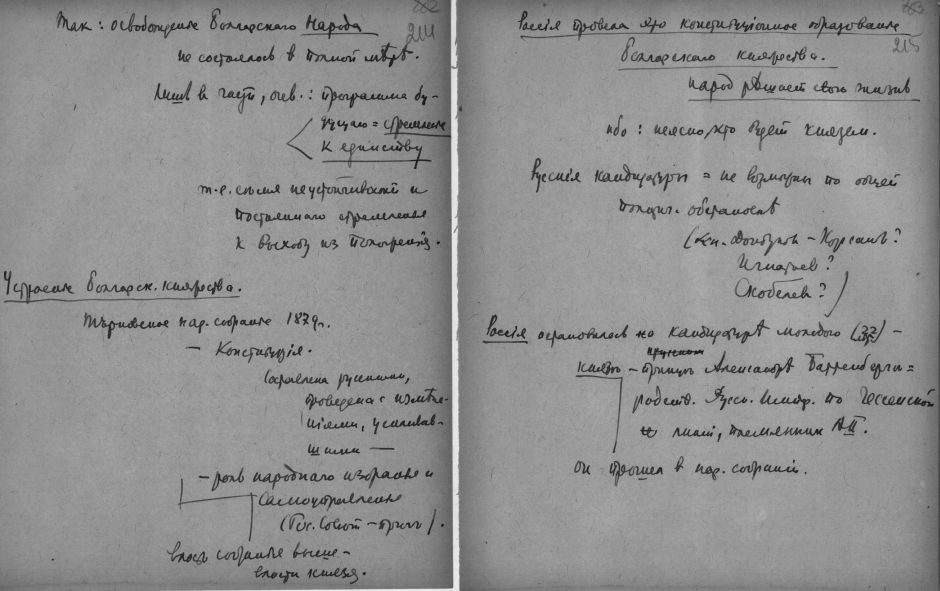 212
214
Так: освобожденіе Болгарскаго Народа
не состоялось в полной мѣрѣ.
Лишь в части, очев.: программа бу-
дущаго = стремленіе
к единству
т.-е. стремленіе
постояннаго стремленія
к выходу из
Устроеніе Болгарск. княжества.
Тырновское нар. собраніе 1879 г.
— Конституція.
Составлена русскими,
проведена с измѣне-
ніями, усиливав-
шими —
— роль народнаго избранія и
самоуправленія
(Гос. Совѣт —).
власть собранія выше
власти князя.
213
215
Россія провела это конституціонное образованіе
Болгарскаго княжества.
народ рѣшает свою жизнь
ибо: неясно, кто будет князем.
Русскія кандидатуры = не возможны по общей
полит. обстановкѣ
(кн. Дондуков – Корсаков?
Игнатьев?
Скобелев?)
Россія остановилась на кандидатурѣ молодого (22) –
князь – принцѣ Александрѣ Баттенберги=
родств. Русск. Импер. по Гессенской
линіи, племянник АII.
Он прошел в нар. собраніи.